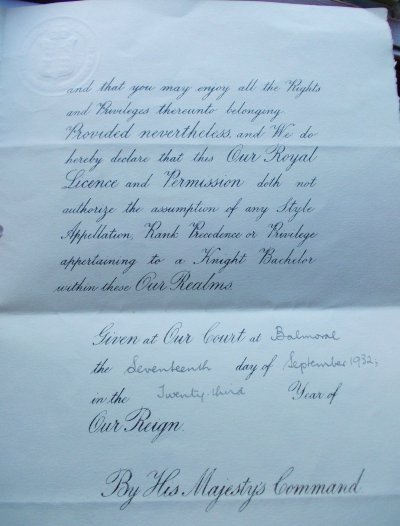 and that you may enjoy all the Rights
and Privileges thereunto belonging.
Provided nevertheless, and We do
hereby declare that this Our Royal
Licence and Permission doth not
authorize the assumption of any Style
Appellation, Rank Precedence or Privilege
appertaining to a Knight Bachelor
within these Our Realms.
Given at Our Court at Balmoral
the Seventeenth day of September 1932;
in the Twenty-third Year of
Our Reign.
By His Majesty's Command.